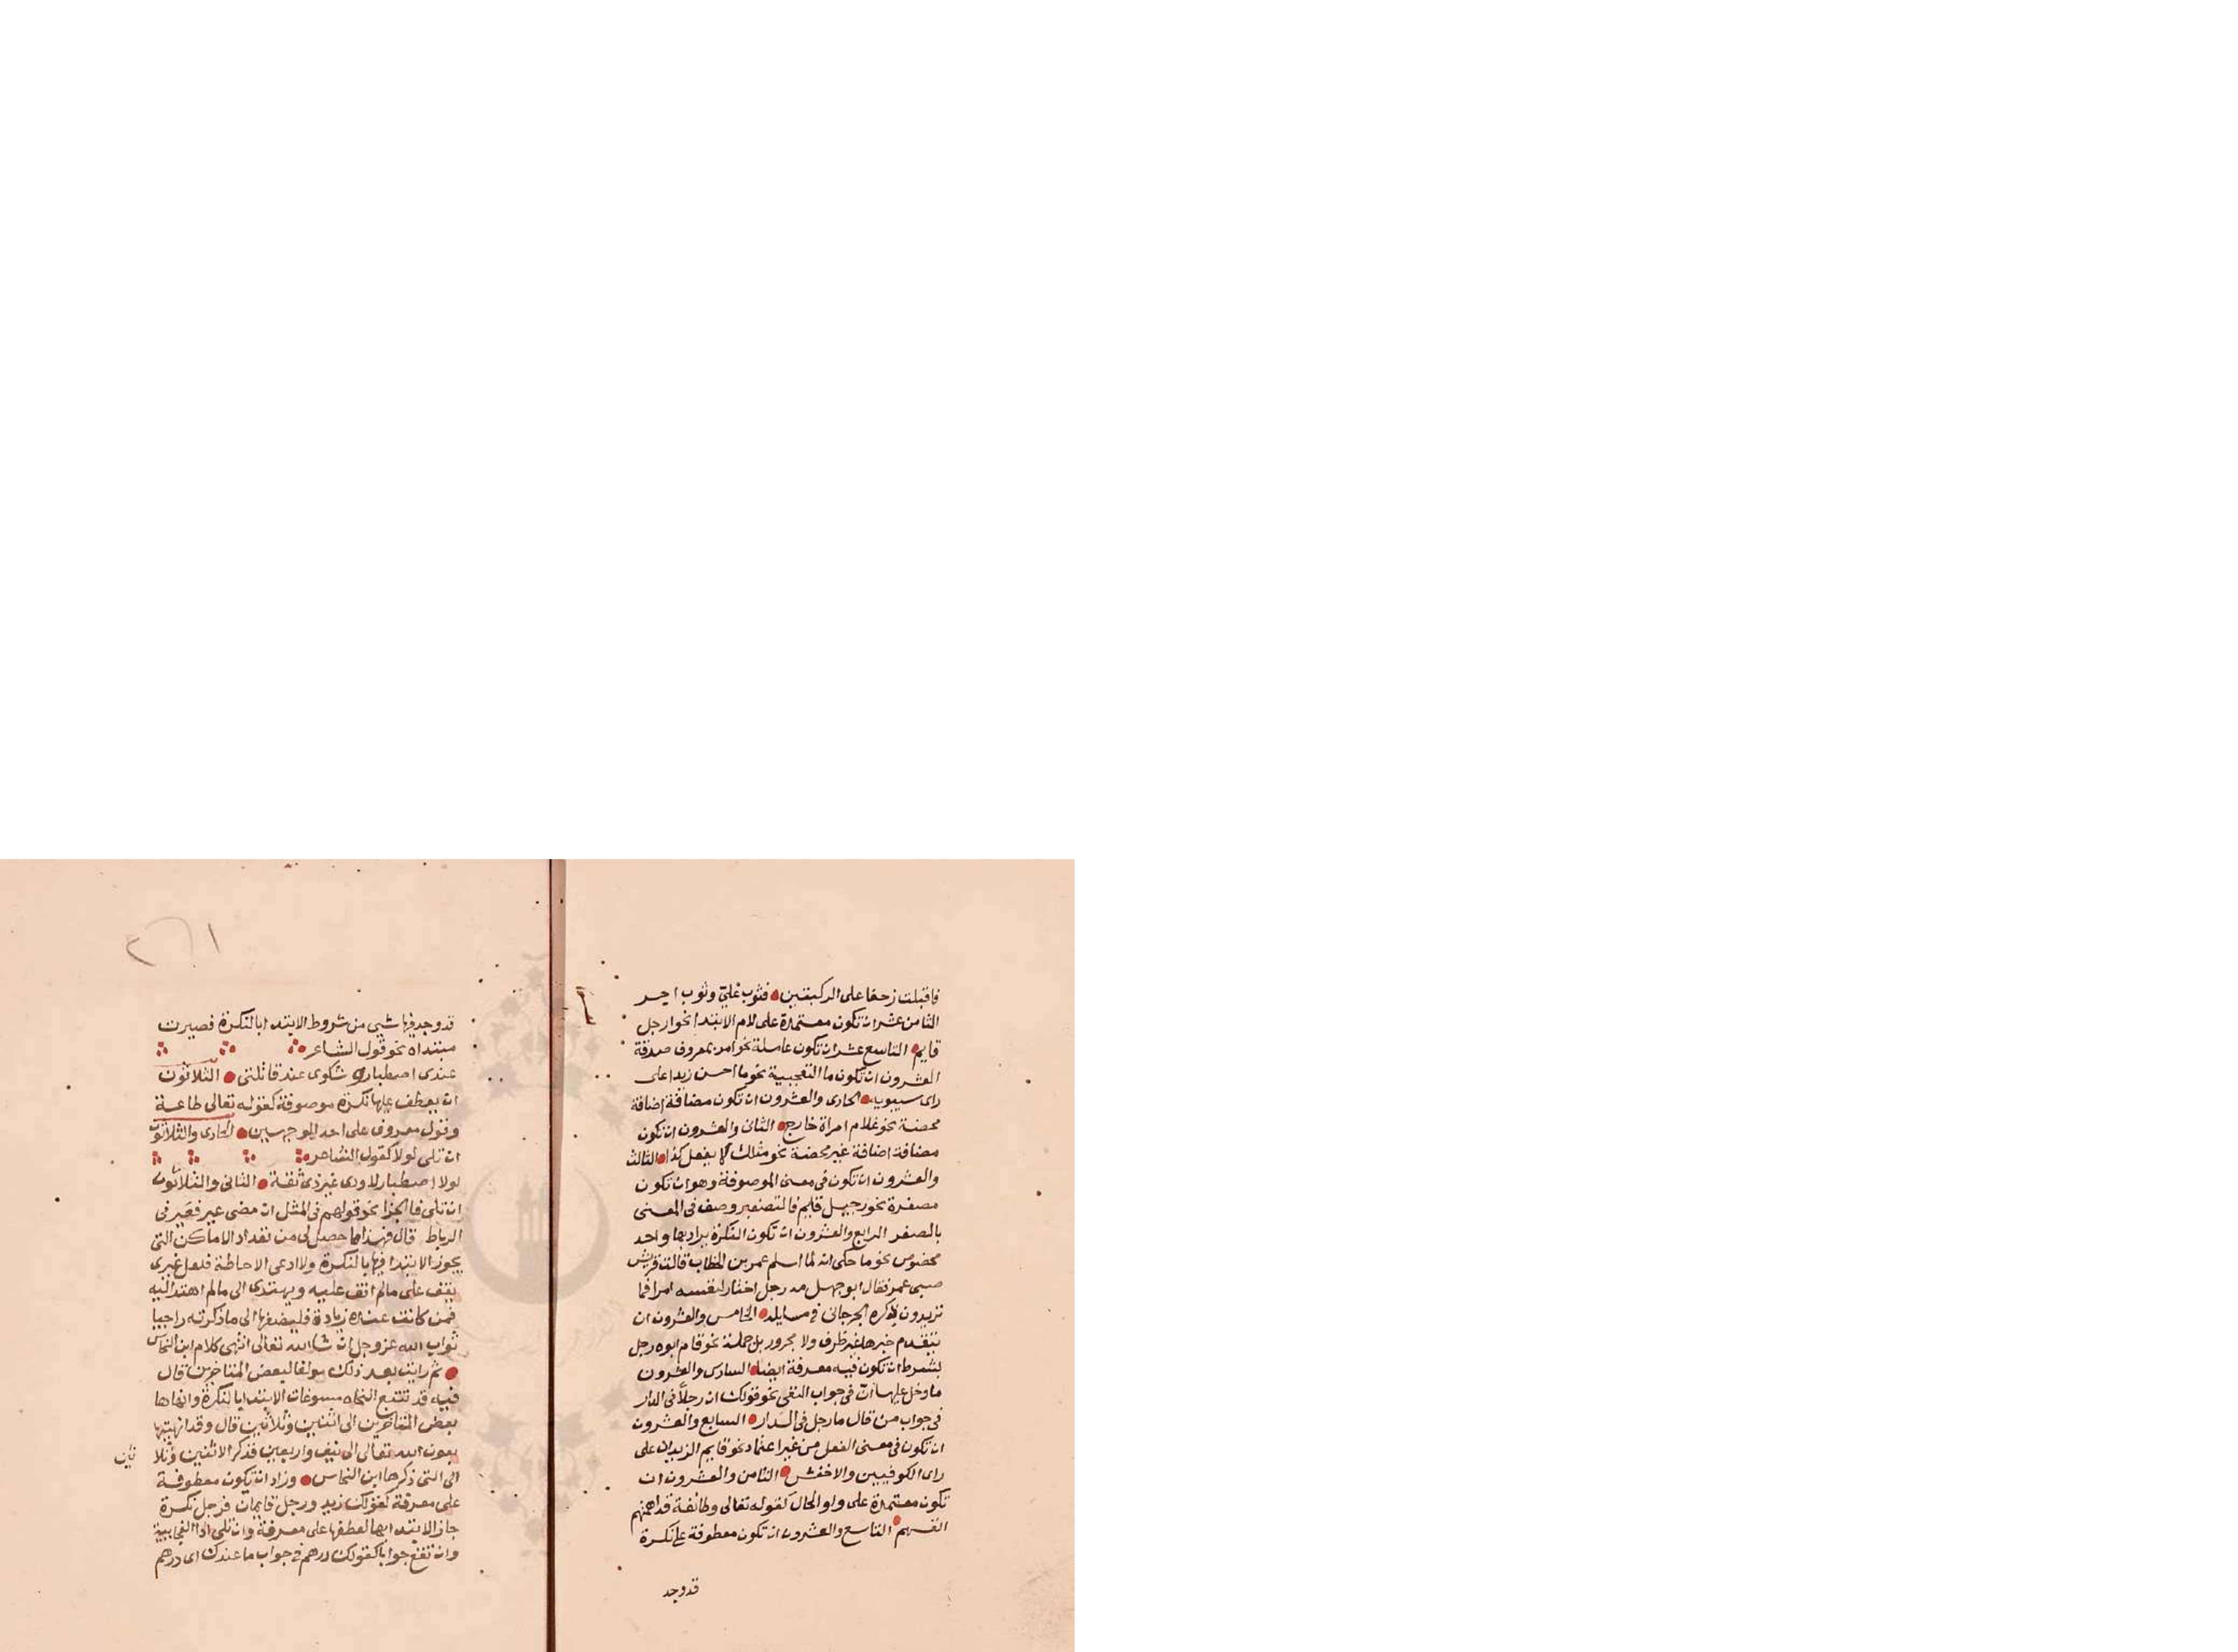 فاقبلت زحفا على الركبتين فثوب علي وثوب اجر
الثامن عشر ان تكون معتمدة على لام الابتدا نحو لرجل
قايم التاسع عشر ان تكون عاملة نحو امر بمعروف صدقة
العشرون ان تكون ما التعجبية نحو ما احسن زيدا على
راى سيبويه الحادى والعشرون ان تكون مضافة اضافة
محضة نحو غلام امراة خارج الثانى والعشرون ان تكون
مضافة اضافة غير محضة نحو مثلك لا يفعل كذا الثالث
والعشرون ان تكون فى معنى الموصوفة وهو ان تكون
مصغرة نحو رجيل قايم فالتصغير وصف فى المعنى
بالصغر الرابع والعشرون ان تكون النكرة يراد بها واحد
مخصوص نحو ما حكى انه لما اسلم عمر بن الخطاب قالت قريش
صبى عمر فقال ابو جهل مه رجل اختار لنفسه امرا فما
تريدون ذكره الجرجانى فى مسايله الخامس والعشرون ان
يتقدم خبرها غير ظرف ولا مجرور بل جملة نحو قام ابوه رجل
بشرط ان تكون فيه معرفة ايضا السادس والعشرون
ما دخل عليها انّ فى جواب النفى نحو قولك ان رجلاً فى الدار
فى جواب من قال ما رجل فى الدار السابع والعشرون
ان تكون فى معنى الفعل من غير اعتماد نحو قايم الزيدان على
راى الكوفيين والاخفش الثامن والعشرون ان
تكون معتمدة على واو الحال كقوله تعالى وطائفة قد اهمتهم
انفسهم التاسع والعشرون ان تكون معطوفة على نكرة
قد وجد
٢٦١
قد وجد فيها شيى من شروط الابتدا بالنكرة فصيرت
مبتداه نحو قول الشاعر
عندى اصطبار و شكوى عند قاتلتى الثلاثون
ان يعطف عليها نكرة موصوفة كقوله تعالى طاعة
وقول معروف على احد الوجهين الحادى والثلاثون
ان تلى لولا كقول الشاعر
لولا اصطبار لاودى غير ذى ثقة الثانى والثلاثون
ان تلى فا الجزا نحو قولهم فى المثل ان مضى عير فعير فى
الرباط قال فهذا ما حصل لى من تعداد الاماكن التى
يجوز الابتدا فيها بالنكرة ولا ادعى الاحاطة فلعل غيرى
يقف على ما لم اقف عليه ويهتدى الى ما لم اهتد اليه
فمن كانت عنده زيادة فليضفها الى ما ذكرته راجيا
ثواب الله عز وجل ان شا الله تعالى انتهى كلام ابن النحاس
ثم رايت بعد ذلك مولفا لبعض المتاخرين قال
فيه قد تتبع النحاه مسوغات الابتدا بالنكرة وانهاها
بعض المتاخرين الى اثنين وثلاثين قال وقد انهيتها
بعون الله تعالى الى نيف واربعين فذكر الاثنين وثلا
ثين
الى التى ذكرها ابن النحاس وزاد ان تكون معطوفة
على معرفة كقولك زيد ورجل قايمان فرجل نكرة
جاز الابتدا بها لعطفها على معرفة وان تلى اذا الفجايية
وان تقع جوابا كقولك درهم فى جواب ما عندك اى درهم